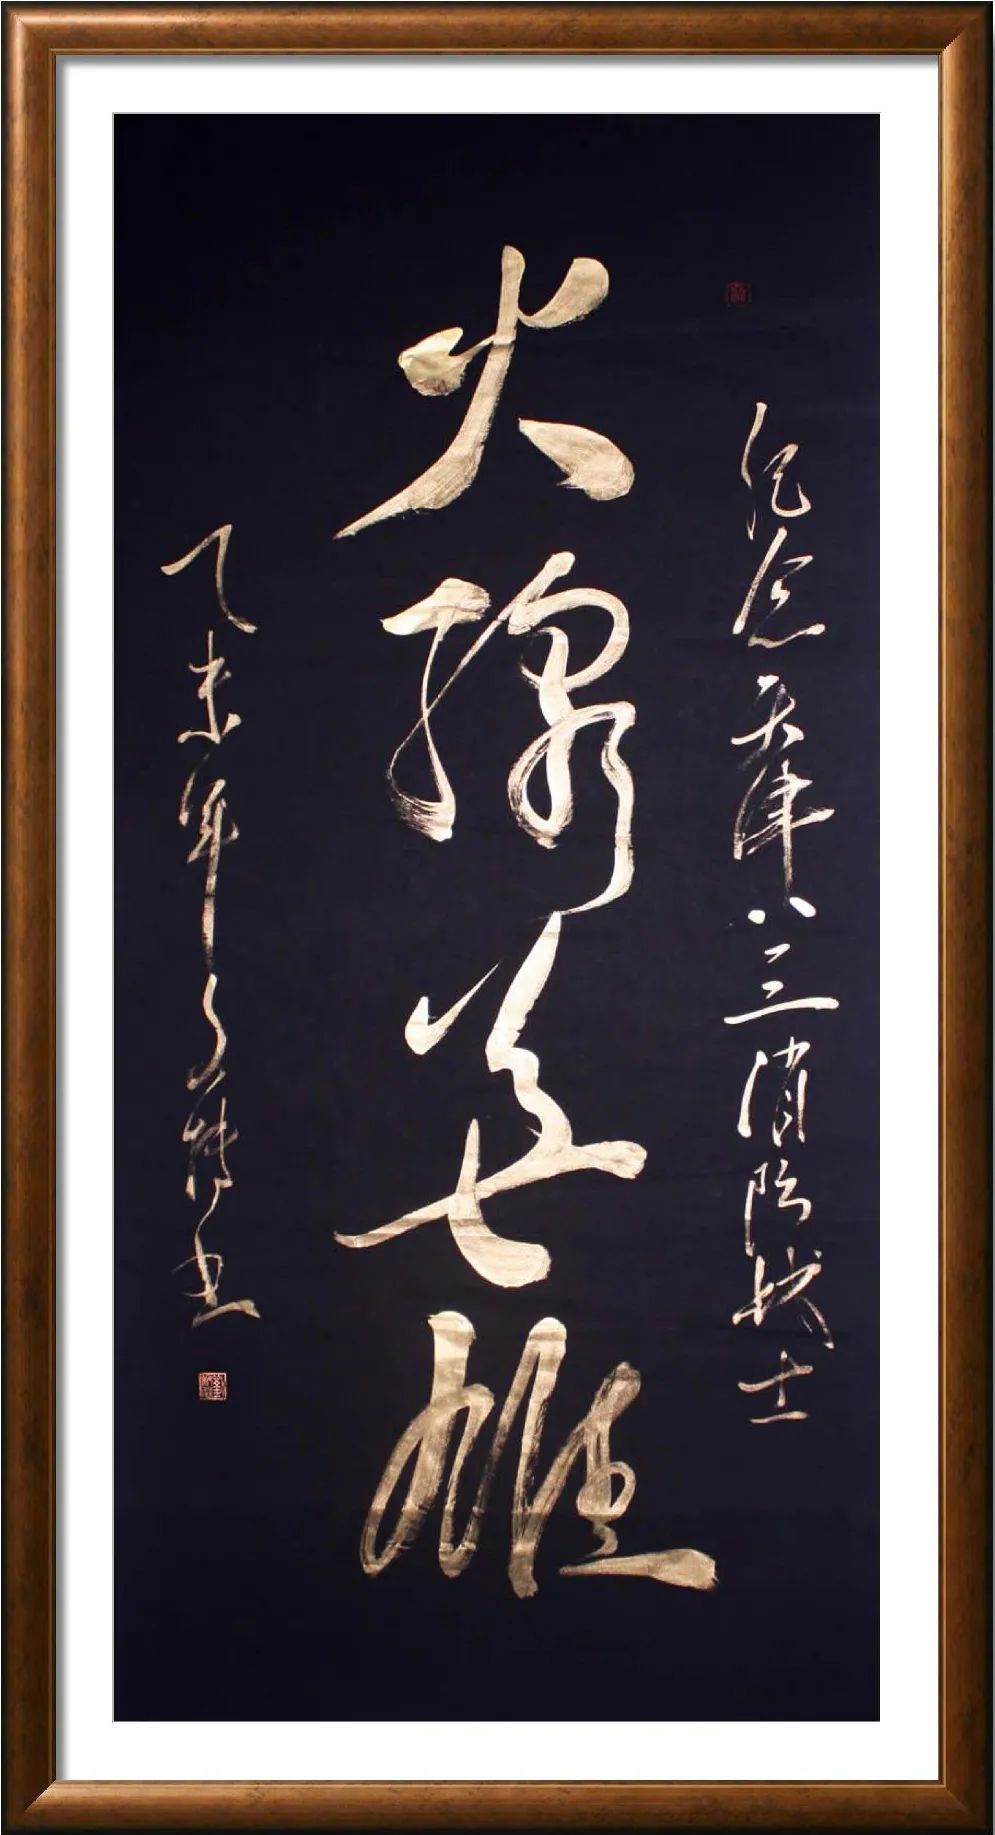 纪念天津八一二消防战士
火線英雄
乙未年書